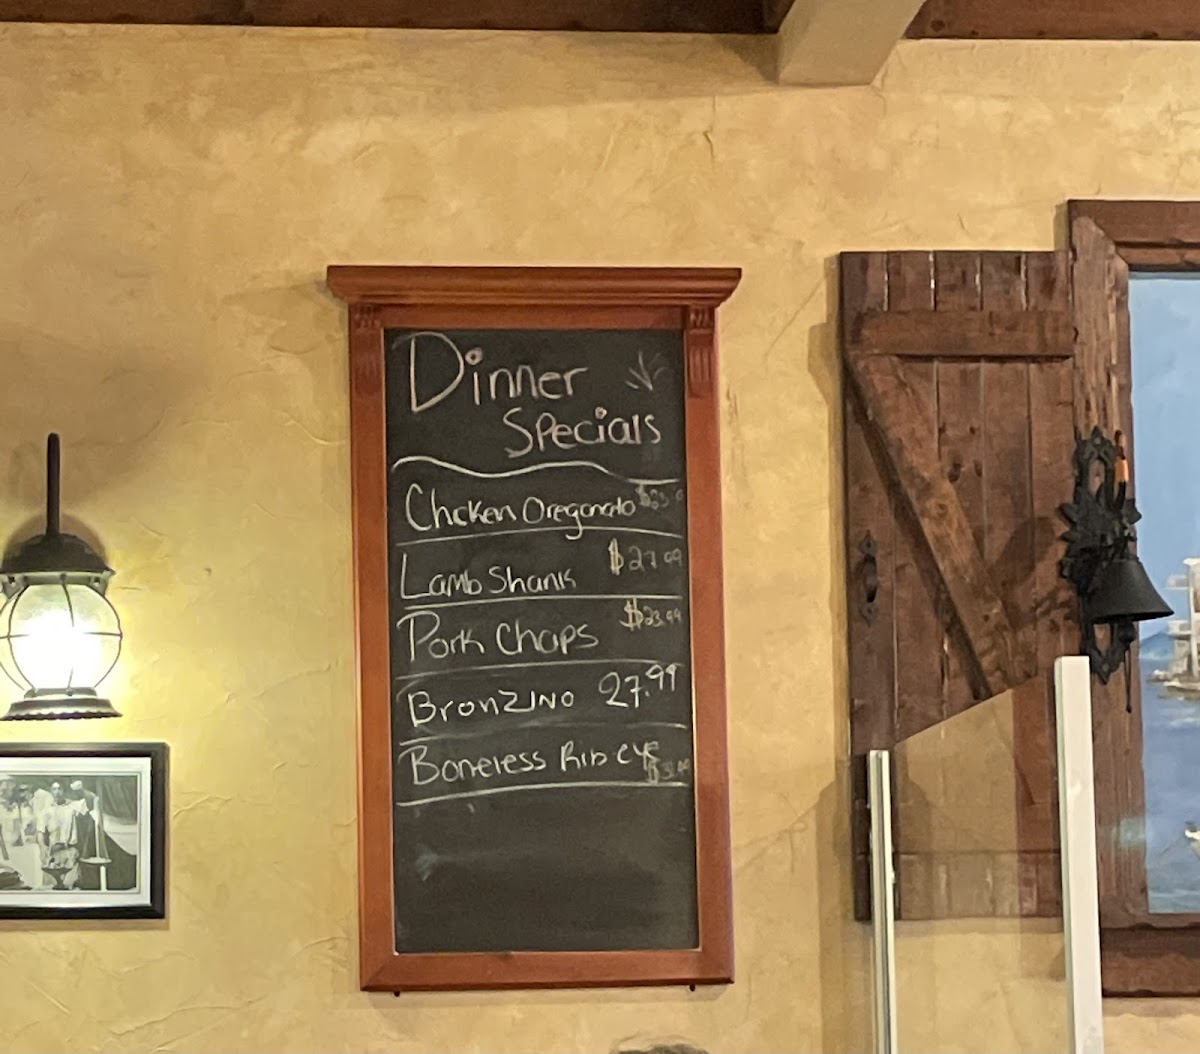 Dinner
Specials
Chicken Oreganato
Lamb Shank $27.99
Pork Chops $23.99
BronZINO 27.99
Boneless Rib eye